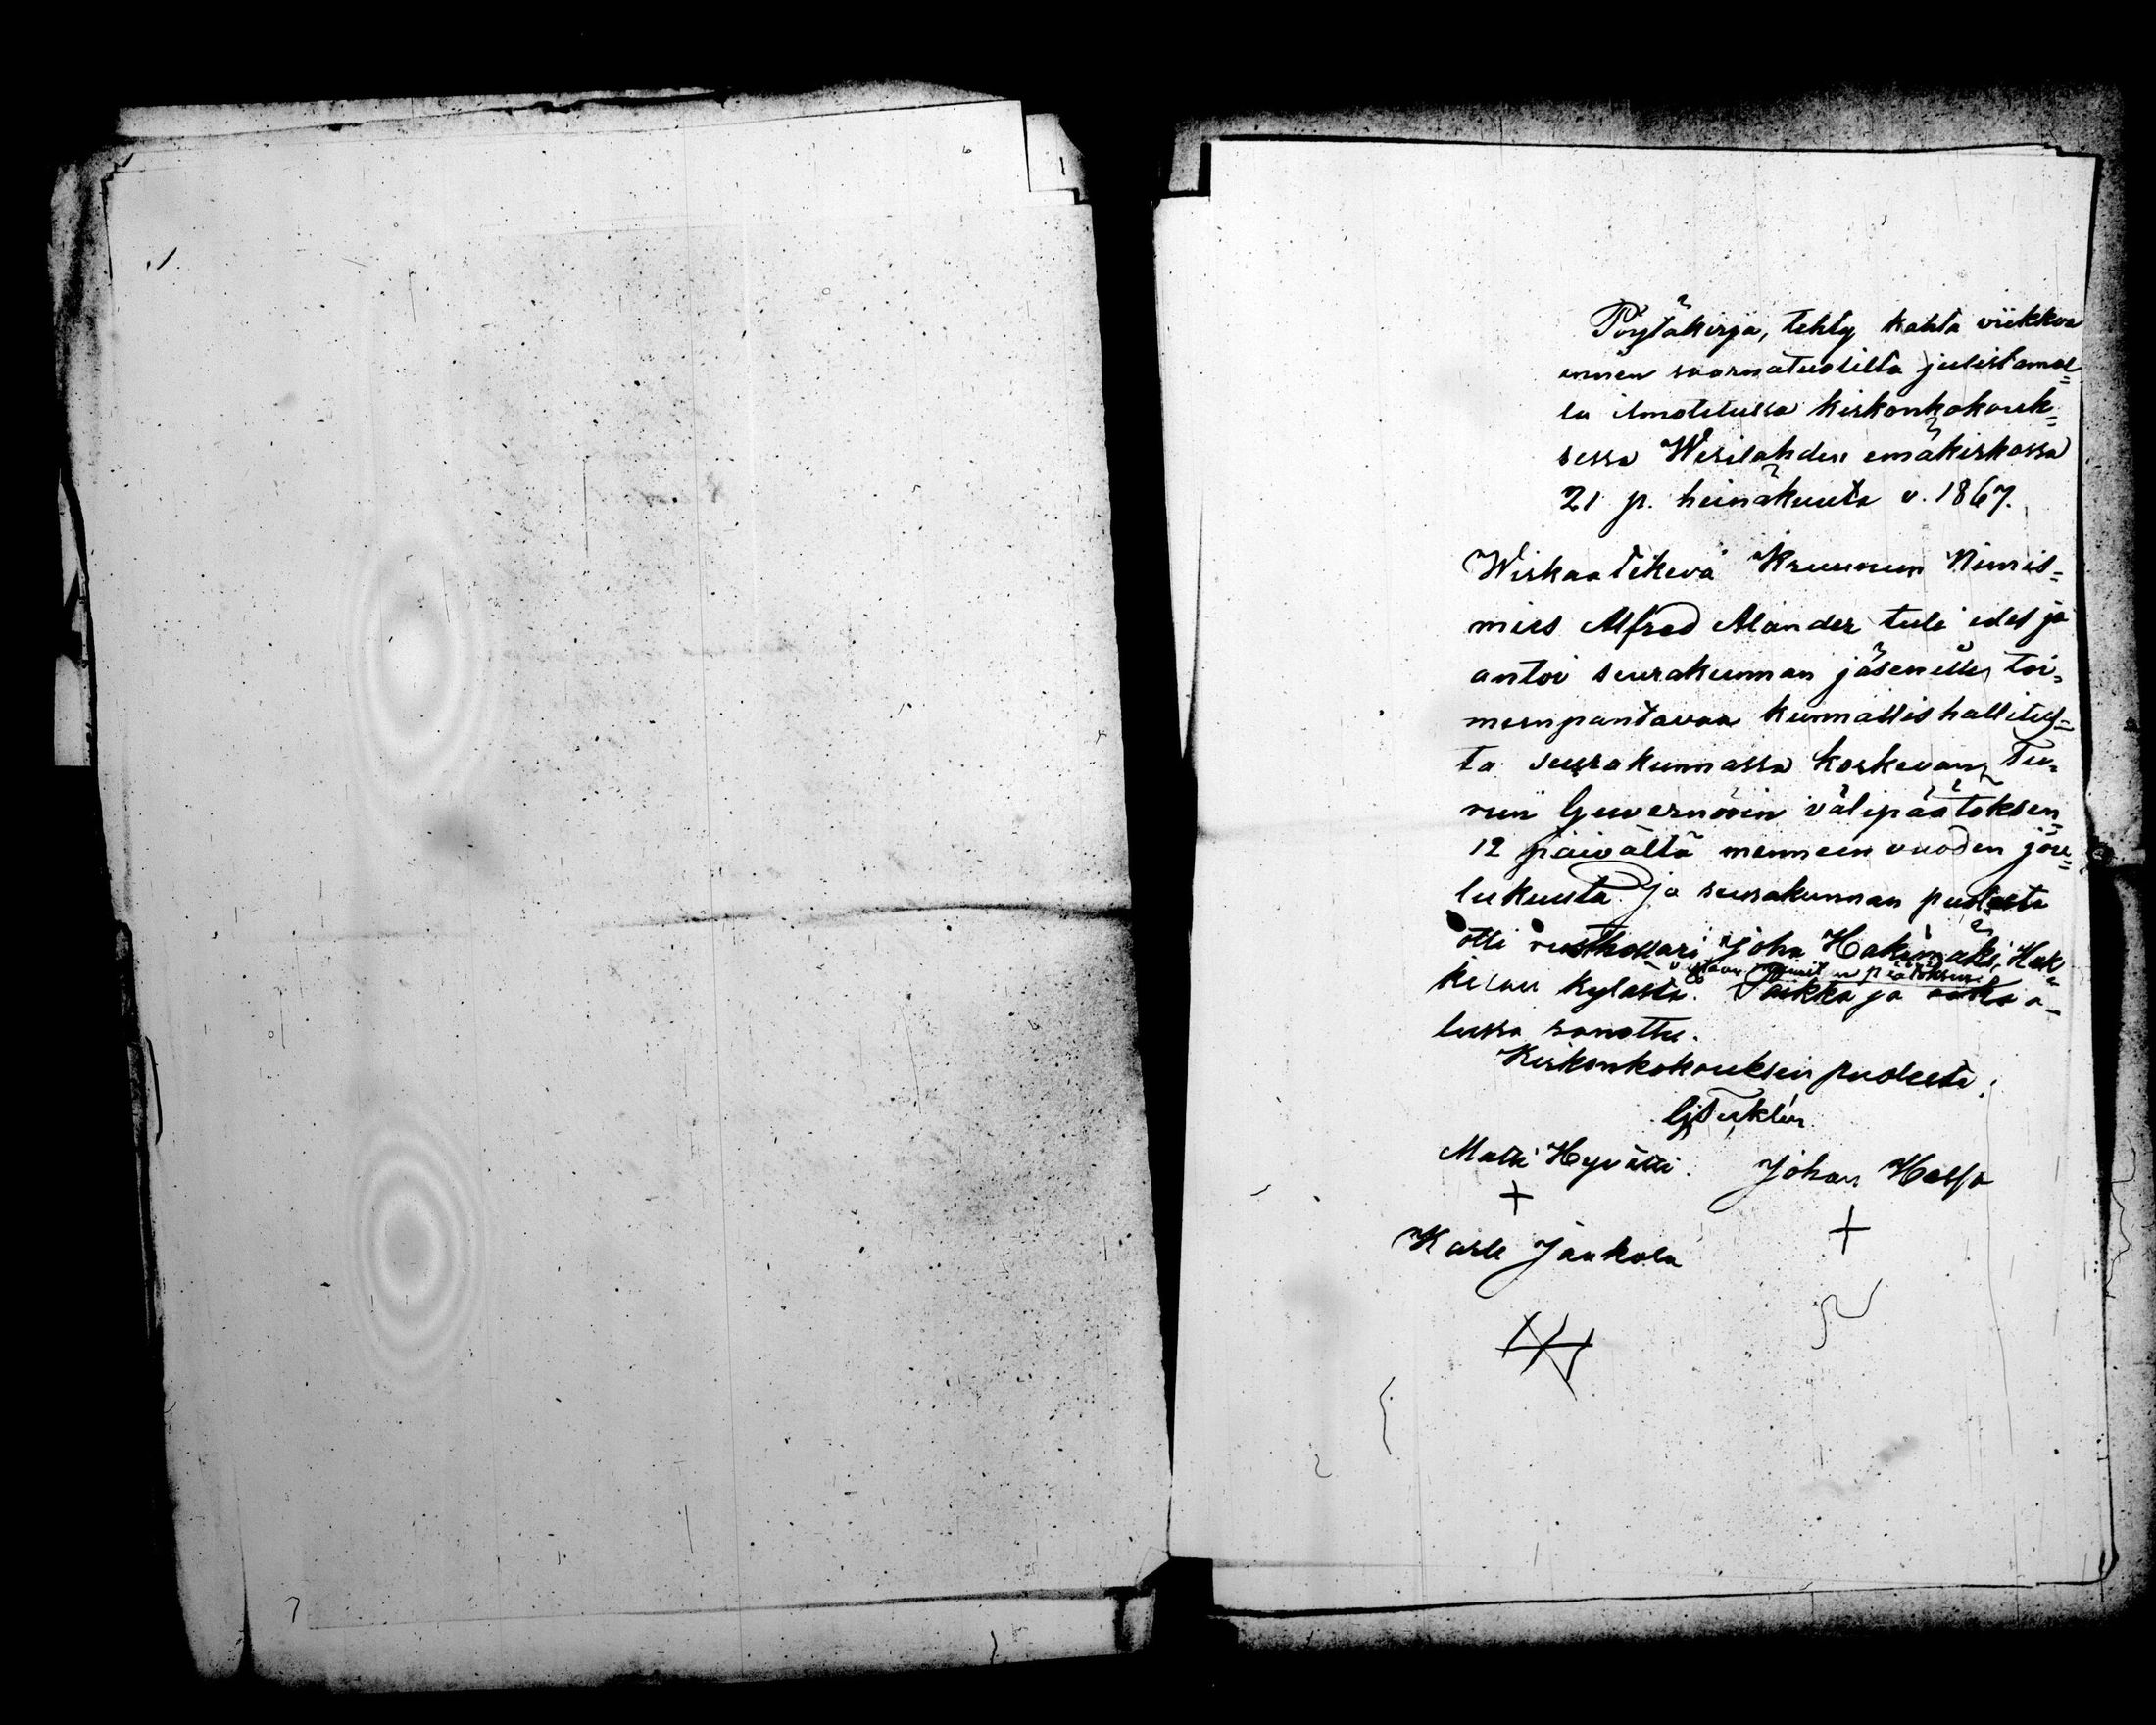 Pöytäkirja, tehty kahta viikkoa
ennen saarnatuolilta julistamal=
la ilmotetussa kirkonkokouk=
sessa Wesilahden emäkirkossa
21 p. heinäkuuta v. 1867.
Wirkaatekevä Kruunun Nimis=
mies Alfred Alander tuli edes ja
antoi seurakunnan jäsenille toi=
meenpantavaa kunnallishallitus=
ta seurakunnassa koskevan Tu=
run Guvernöörin välipäätöksen
12 päivältä menneen vuoden jou=
lukuuta ja seurakunnan puolesta
otti rusthollari Joha Hakimäki, Hak
kilan kylästä. Paikka ja aika a=
vastaan mainitun päätöksen
lussa sanottu.
Kirkonkokouksen puolesta:
Matti Hyvätti. Johan Halsa
+ +
Karle Jaakola